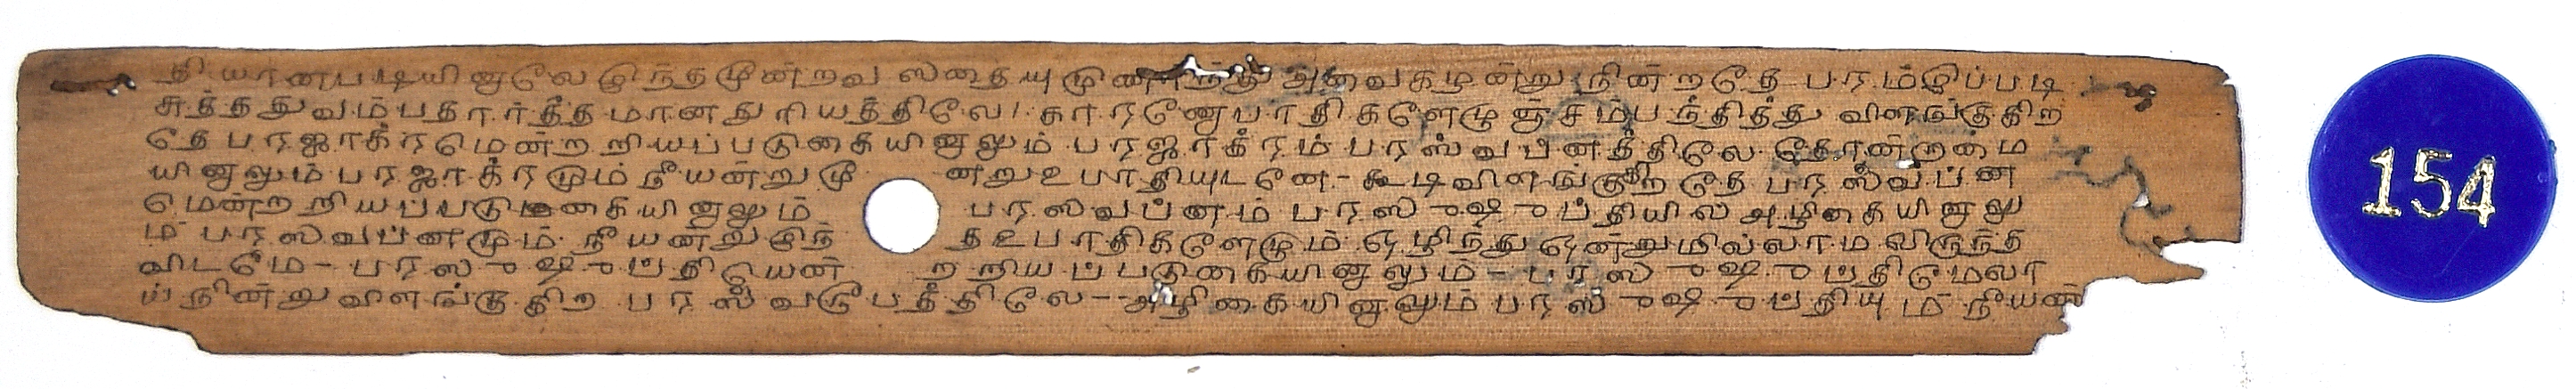 தியானபடியினாலேயிந்தமூன்றவஸதையுமுணர்ந்து அவைகழன்று நின்றதே பரம்இப்படி
சுத்ததுவம்பதார்த்தமானதுரியத்திலே காரணோபாதிகளோமுஞ்சம்பந்தித்து விளங்குகிற
தே பரஜாக்ரமென்றறியப்படுகையினாலும் பரஜாக்ரம் பரஸ்வப்னத்திலே தோன்றாமை
யினாலும் பரஜாக்ரமும் நீயன்று மூ ன்றுஉபாதியுடனே - கூடிவிளங்குகிறதே பரஸ்வப்ன
மென்றறியப்படுகையினாலும் பரஸ்வப்னம் பரஸுஷுப்தியில் அழிகையினாலு
ம் பரஸ்வப்னமும் நீயன்று இந் தஉபாதிகளோமும் ஒழிந்து ஒன்றுமில்லாமலிருந்த
விடமே - பரஸுஷுப்தியென் றறியப்படுகையினாலும் - பரஸுஷுப்திமேலா
ய் நின்று விளங்குகிற பரஸ்வரூபத்திலே - - அழிகையினாலும் பரஸுஷுப்தியும் நீயன்
154